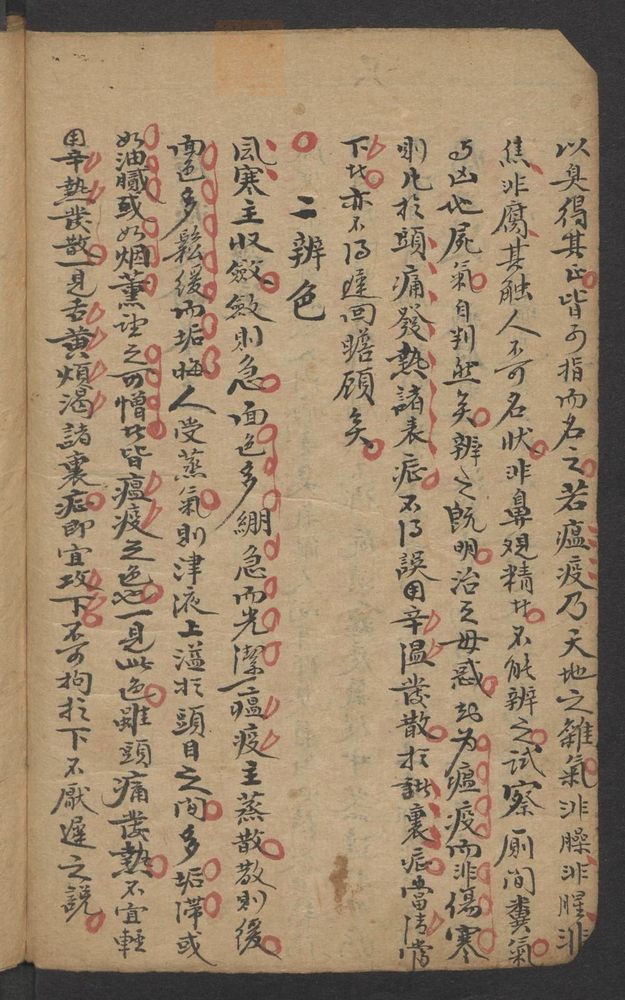 以臭得其正皆可指而名之若瘟疫乃天地之雜氣非臊非腥非
焦非腐其触人不可名狀非鼻覌精者不能辨之試察厠間糞氣
与凶地屍氣自判然矣辨之既明治之毋惑知为瘟疫而非傷寒
則凡扵頭痛發熱諸表症不得誤用辛温發散扵諸裏症當清當
下者亦不得遲回瞻顧矣
二辨色
風寒主收斂斂則急面色多綳急而光潔瘟疫主蒸散散則緩
面色多鬆緩而垢晦人受蒸氣則津液上溢扵頭目之间多垢滯或
如油膩或如烟薰望之可憎者皆瘟疫之色也一見此色雖頭痛發熱不宜輕
用辛熱發散一見舌黄煩渴諸裏症即宜攻下不可拘扵下不厭遲之說